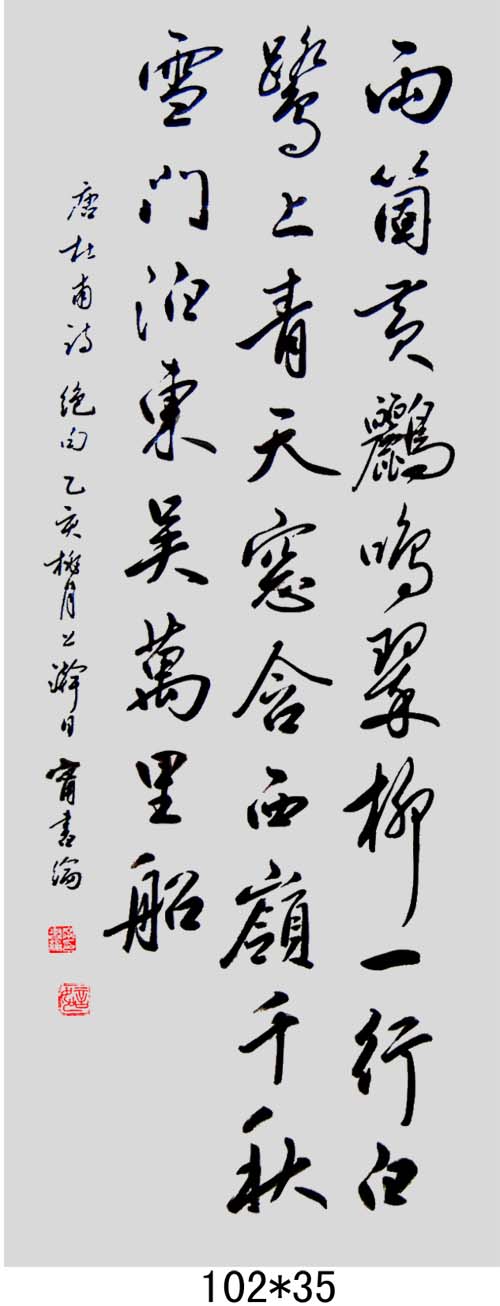 兩箇黃鸝鳴翠柳一行白
鷺上青天窓含西嶺千秋
雪門泊東吴萬里船
唐杜甫詩 絶句 乙亥月上澣日 甯書綸
102*35